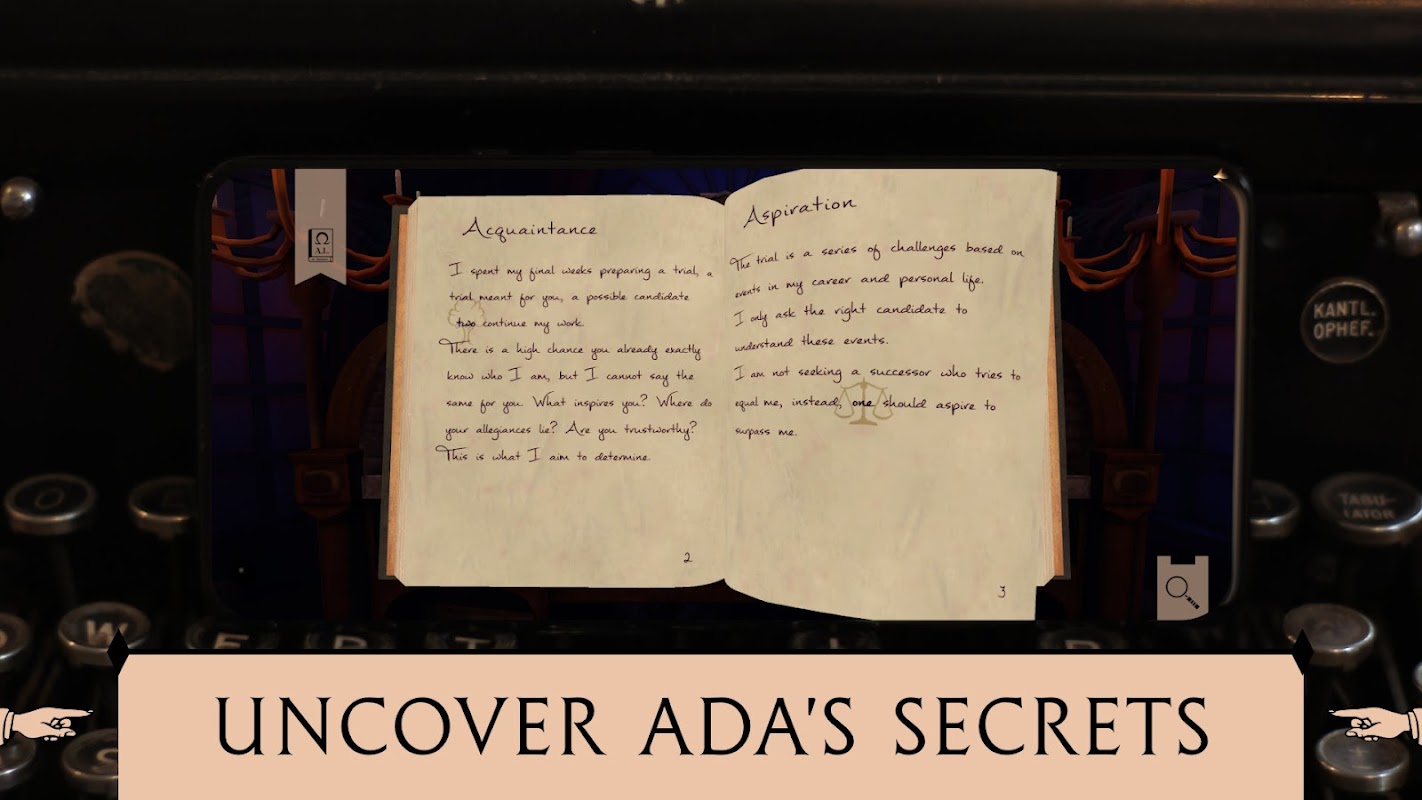 Acquaintance
I spent my final weeks preparing a trial, a
trial meant for you, a possible candidate
two continue my work.
There is a high chance you already exactly
know who I am, but I cannot say the
same for you. What inspires you? Where do
your allegiances lie? Are you trustworthy?
This is what I aim to determine.
2
Aspiration
The trial is a series of challenges based on
events in my career and personal life.
I only ask the right candidate to
understand these events.
I am not seeking a successor who tries to
equal me, instead, one should aspire to
surpass me.
3
Ω
A.L.
KANTL.
OPHEF.
TABU-
LATOR
O
W E R T
UNCOVER ADA'S SECRETS